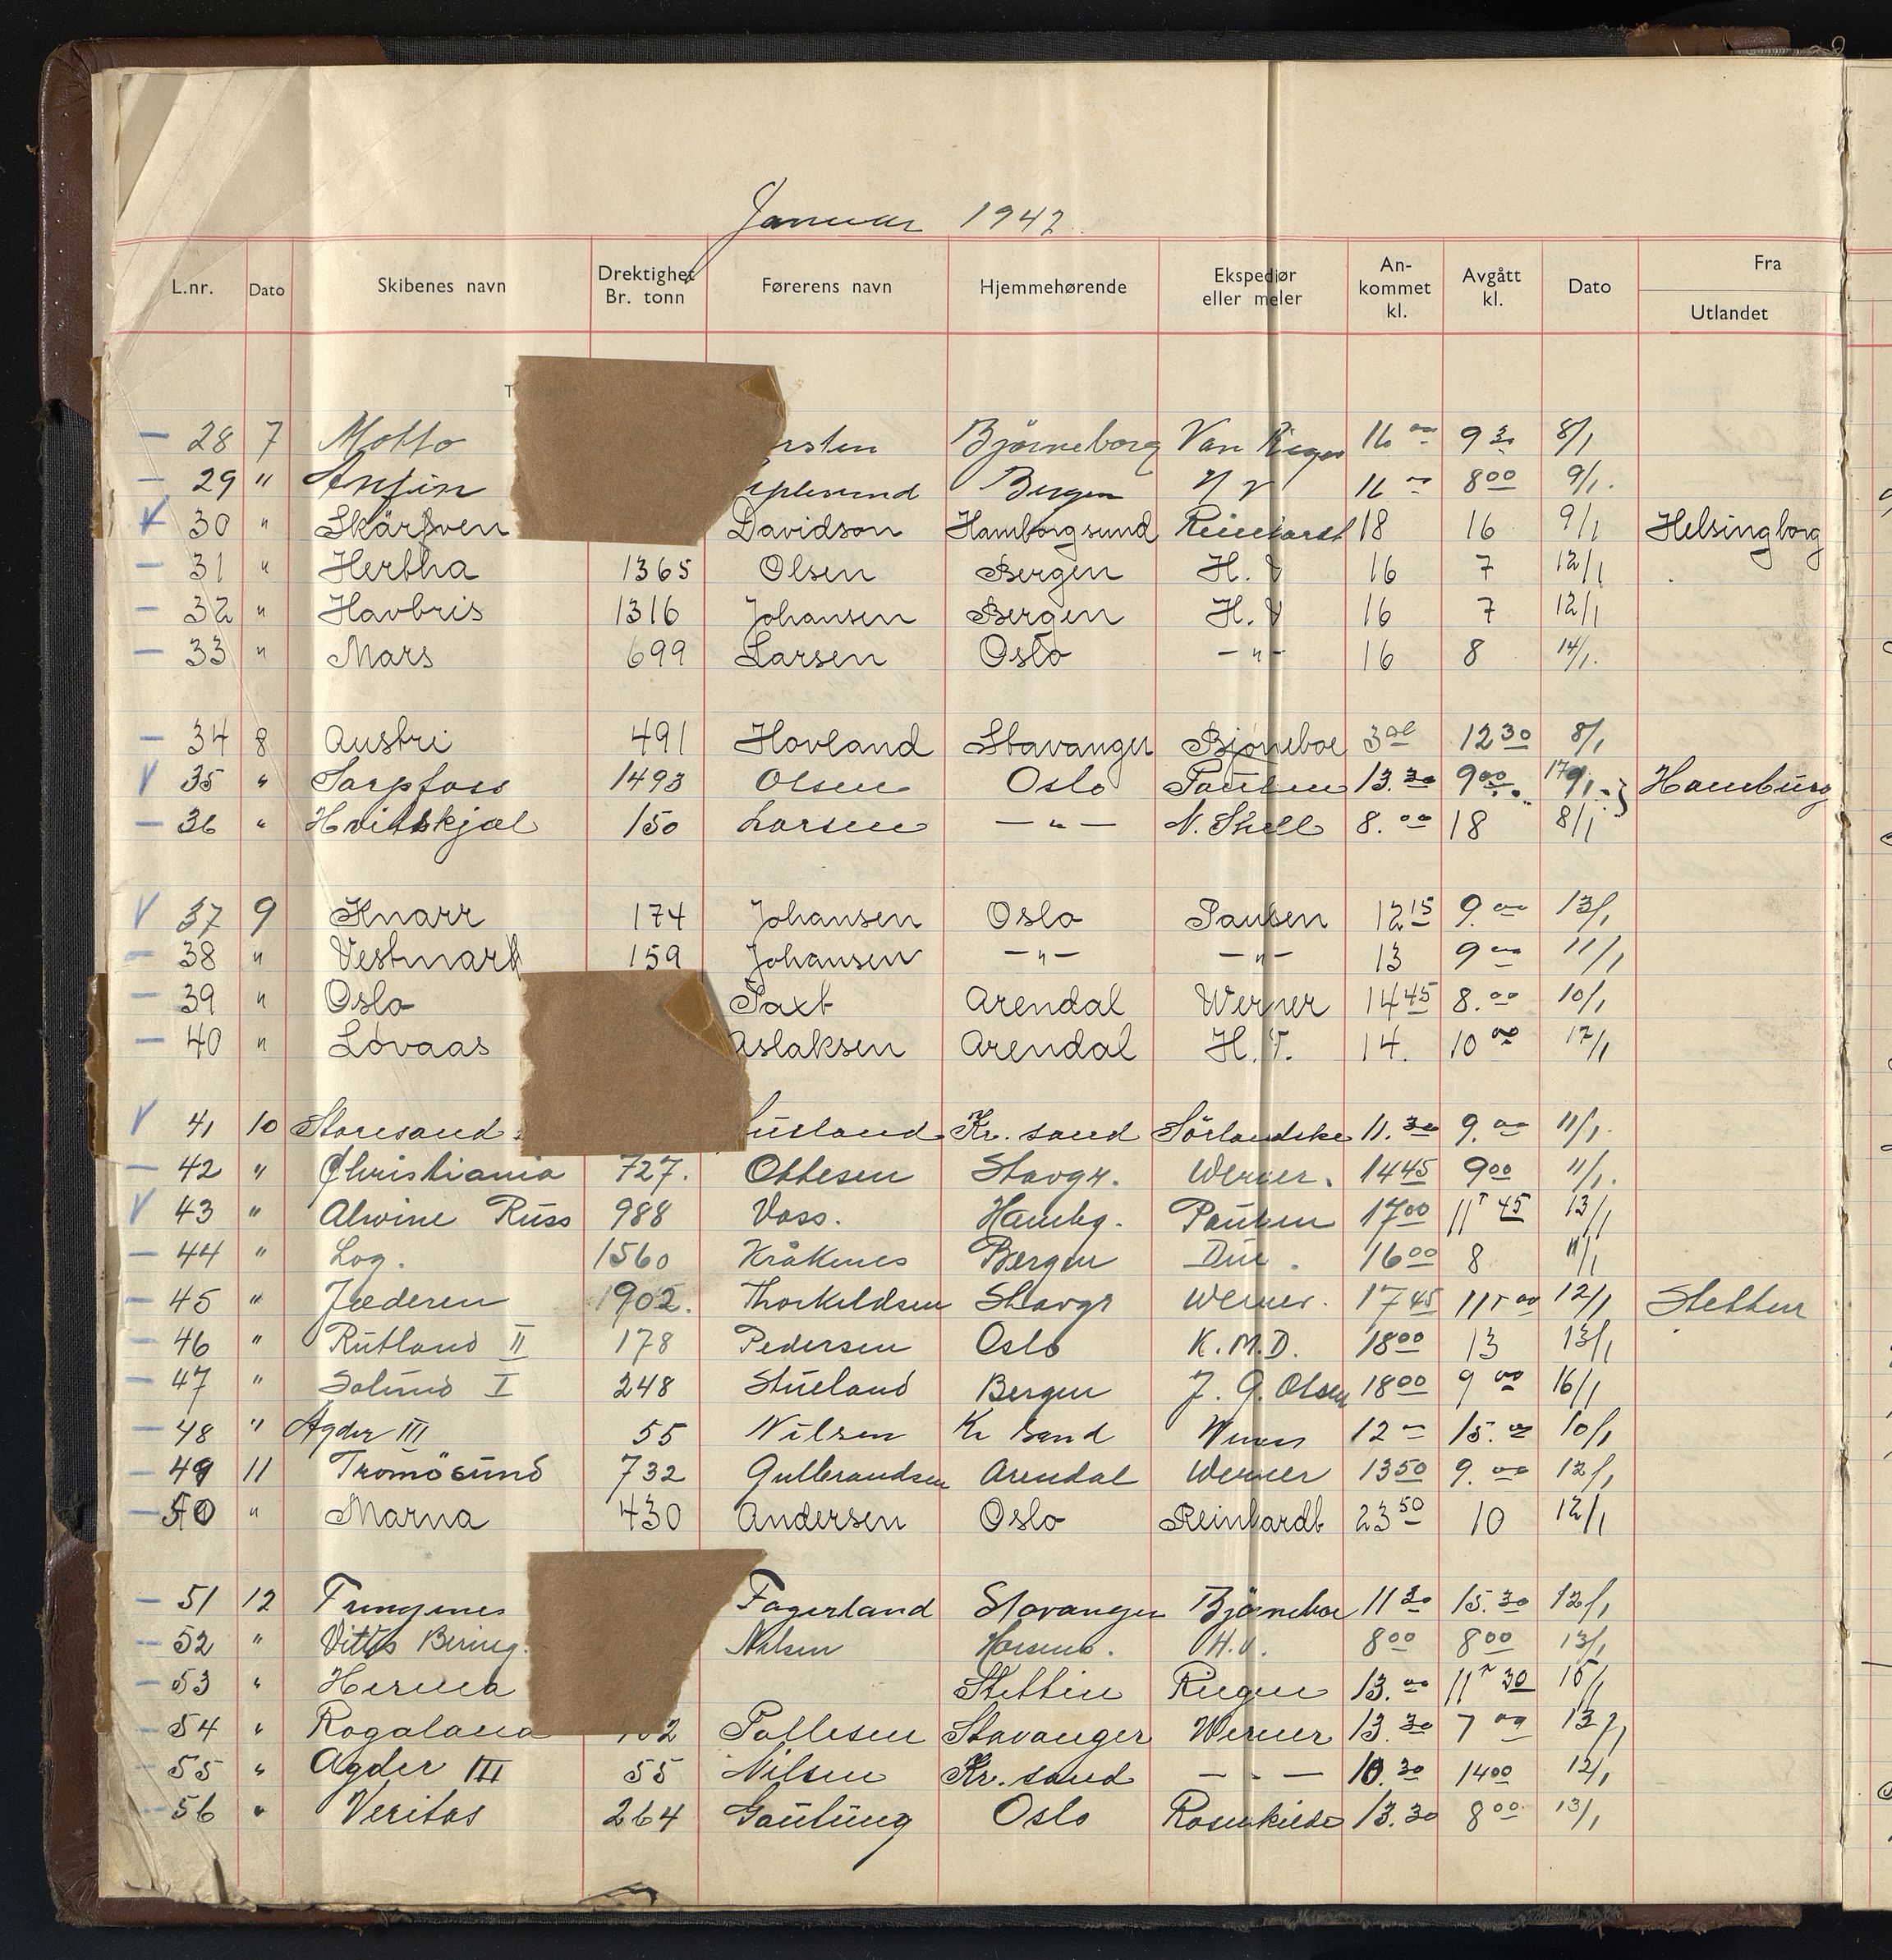 Januar 1942.
L.nr. Dato Skibenes navn Drektighet Br. tonn Førerens navn Hjemmehørende Ekspediør eller meler An-kommet kl. Avgått kl. Dato Fra Utlandet
T
28 7 Motto rsten Björneborg Van 16 00 9 30 8/1
29 " Bergen 16 00 8 00 9/1.
30 " Skärfven Davidson Hamborgsund Reinhardt 18 16 9/1 Helsingborg
31 " Hertha 1365 Olsen Bergen H. V 16 7 12/1
32 " Havbris 1316 Johansen Bergen H. V 16 7 12/1
33 " Mars 699 Larsen Oslo — " — 16 8 14/1.
34 8 Austri 491 Hovland Stavanger Bjørneboe 3 00 12 30 8/1
35 " Sarpfoss 1493 Olsen Oslo Paulsen 13.30 9 00 Hamburg
36 " Hvitskjæl 150 Larsen — " — N. Shell 8.00 18 8/1
37 9 Knarr 174 Johansen Oslo Paulsen 12 15 9.00 13/1
38 " Vestmark 159 Johansen — " — — " — 13 9 00 11/1
39 " Oslo Paxt Arendal Werner 14 45 8.00 10/1
40 " Lovaas Aslaksen Arendal H. V. 14. 10 00 12/1
41 10 Storesand Kr. sand Sörlandske 11.30 9.00 11/1.
42 " Christiania 727. Ottesen Stavgr. Werner. 14 45 9 00 11/1.
43 " Alwine Russ 988 Voss. Hambg. Paulsen 17 00 11 45 13/1
44 " Log. 1560 Kråkenes Bergen Due. 16 00 8 11/1
45 " Jæderen 1902. Thorkildsen Stavgr Werner. 17 45 11 00 12/1 Stettin
46 " Rutland II 178 Pedersen Oslo K.M.D. 18 00 13 13/1
47 " Solund I 248 Stueland Bergen J. G. Olsen 18 00 9 00 16/1
48 " Agder III 55 Nilsen Kr Sand Werner 12 — 15.00 10/1
49 11 Tromösund 732 Gulbrandsen Arendal Werner 13 50 9.00 12/1
50 " Marna 430 Andersen Oslo Reinhardt 23 50 10 12/1
51 12 Fagerland Stavanger Björneboe 11 30 15.30 12/1
52 " Vitus Bering. Nilsen Horsens. H.V. 8 00 8 00 13/1
53 " Herma Stettin 13.00 11 30 15/1
54 " Rogaland 02 Pallesen Stavanger Werner 13.30 7 00 13/1
55 " Agder III 55 Nilsen Kr. sand — " — 10.30 14 00 12/1
56 " Veritas 264 Oslo Rosenkilde 13.30 8 00 13/1